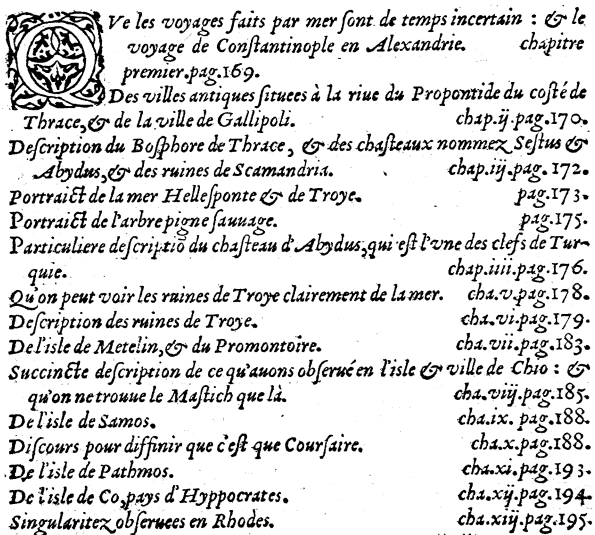 QVe les voyages faits par mer sont de temps incertain : & le
voyage de Constantinople en Alexandrie. chapitre
premier.pag.169.
Des villes antiques situees à la riue du Propontide du costé de
Thrace,& de la ville de Gallipoli. chap.ij.pag.170.
Description du Bosphore de Thrace, & des chasteaux nommez Sestus &
Abydus,& des ruines de Scamandria. chap.iij.pag.172.
Portraict de la mer Hellesponte & de Troye. pag.173.
Portraict de l'arbre pigne sauuage. pag.175.
Particuliere descriptiō du chasteau d'Abydus,qui est l'vne des clefs de Tur-
quie. chap.iiii.pag.176.
Qu'on peut voir les ruines de Troye clairement de la mer. cha.v.pag.178.
Description des ruines de Troye. cha.vi.pag.179.
De l'isle de Metelin,& du Promontoire. cha.vii.pag.183.
Succincte description de ce qu'auons obserué en l'isle & ville de Chio : &
qu'on ne trouue le Mastich que là. cha.viij.pag.185.
De l'isle de Samos. cha.ix. pag.188.
Discours pour diffinir que c'est que Coursaire. cha.x.pag.188.
De l'isle de Pathmos. cha.xi.pag.193.
De l'isle de Co,pays d'Hyppocrates. cha.xij.pag.194.
Singularitez obseruees en Rhodes. cha.xiij.pag.195.